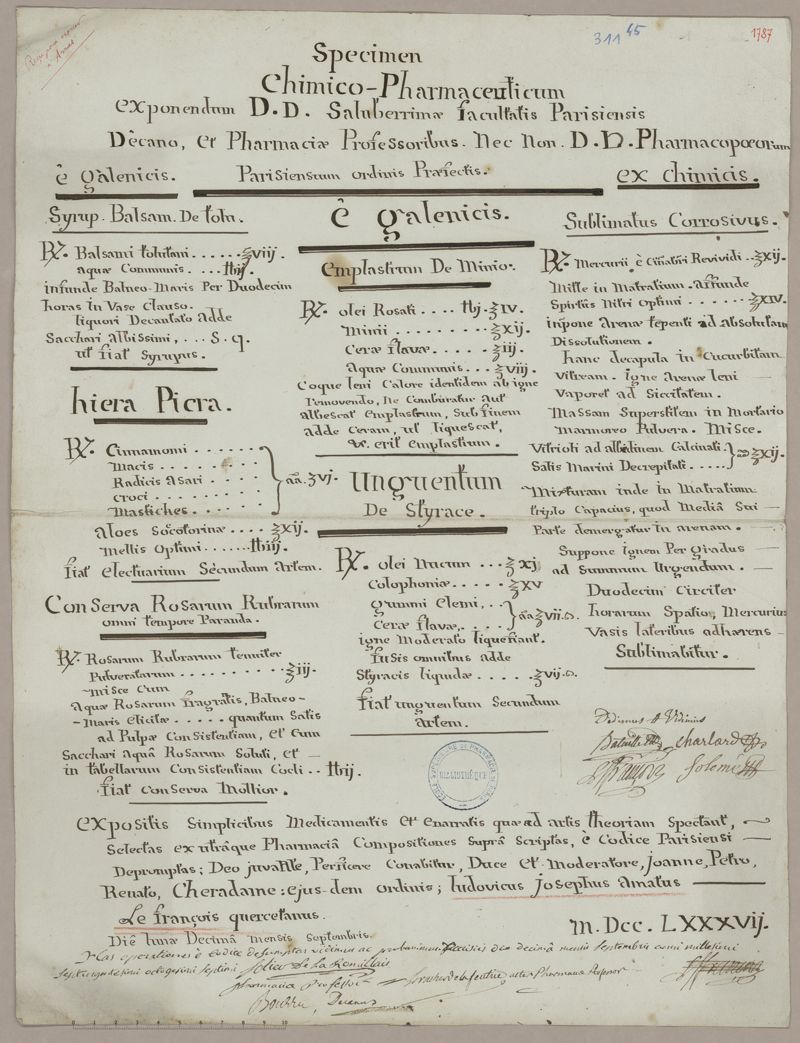 311 45
1787
Specimen
Chimico-Pharmaceuticum
exponendum D.D. Saluberrimæ facultatis Parisiensis
Decano, et Pharmaciæ Professoribus. Nec Non. D.D. Pharmacopœorum
Parisiensium ordinis Præfectis.
ê galenicis.
Syrup. Balsam. De tolu.
℞. Balsami tolutani......℥viij.
aquæ Communis....℔ij.
infunde Balneo-Maris Per Duodecim
horas In Vase Clauso.
liquori Decantato adde
Sacchari albissimi,... S. q.
ut fiat Syrupus.
hiera Picra.
℞. Cinnamomi......
Macis......
Radicis Asari....
croci......
Mastiches.....
āā. ʒvj.
aloes Soccotorinæ....℥xij.
Mellis Optimi.......℔iij.
fiat electuarium Secundum artem.
Conserva Rosarum Rubrarum
omni tempore Paranda.
℞. Rosarum Rubrarum tenuiter
Pulveratarum........℥iij.
Misce Cum
Aquæ Rosarum fragratis, Balneo-
Maris Elicitæ..... quantum Satis
ad Pulpæ Consistentiam, et Cum
Sacchari aquâ Rosarum Soluti, et
in tabellarum Consistentiam Cocti..℔ij.
fiat conserva Mollior.
ê galenicis.
emplastrum De Minio.
℞. olei Rosati....℔j.℥IV.
Minii........℥xij.
Ceræ flavæ.....℥iij.
aquæ Communis...℥viij.
Coque leni Calore identidem ab igne
removendo, Ne Comburatur aut
albescat emplastrum, Sub finem
adde Ceram, ut liquescat,
&. erit emplastrum.
Unguentum
De Styrace.
℞. olei Nucum...℥xj
Colophoniæ.....℥xv
gummi elemi,..
Ceræ flavæ,....
āā℥vii.
igne Moderato liquefiant.
fusis omnibus adde
Styracis liquidæ......℥vij.
fiat unguentum Secundum
artem.
ex chimicis.
Sublimatus Corrosivus.
℞. Mercurii ê Cinabri Revividi..℥xij.
Mitte in Matratium. affunde
Spiritus Nitri Optimi......℥xiv.
inpone arenæ tepenti ad absolutam
Dissolutionem.
hanc decapula in Cucurbitam
Vitream. Igne arenæ leni
Vaporet ad Siccitatem.
Massam Superstitem in Mortario
Marmoreo Pulvera. Misce.
Vitrioli ad albedinem Calcinati.
Salis Marini Decrepitati.....
āā℥xij.
Mixturam inde in Matratium
triplo Capacius, quod Mediâ Sui
Parte demergatur in arenam.
Suppone Ignem Per gradus
ad Summum Urgendum.
Duodecim Circiter
horarum Spatio, Mercurius
Vasis lateribus adhærens
Sublimabitur.
Charlard
Solomé
BIBLIOTHÈQUE
expositis Simplicibus Medicamentis et enarratis quæ ad artis theoriam Spectant,
Selectas ex utrâque Pharmaciâ Compositiones Suprâ Scriptas, ê Codice Parisiensi
Depromptas; Deo juvante, Perficere Conabitur, Duce et Moderatore, Joanne, Petro,
Renato, Cheradame: ejus-dem ordinis; ludovicus josephus amatus
Le françois quercetanus.
Diê lunæ Decimâ Mensis Septembris.
M. Dcc. LXXXVij.
pharmaciæ Professor
Bourru, Decanus